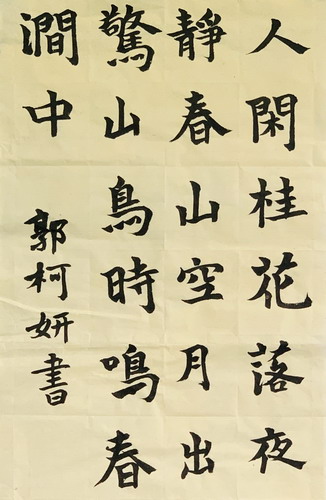 人閑桂花落夜
靜春山空月出
驚山鳥時鳴春
澗中
郭柯妍書